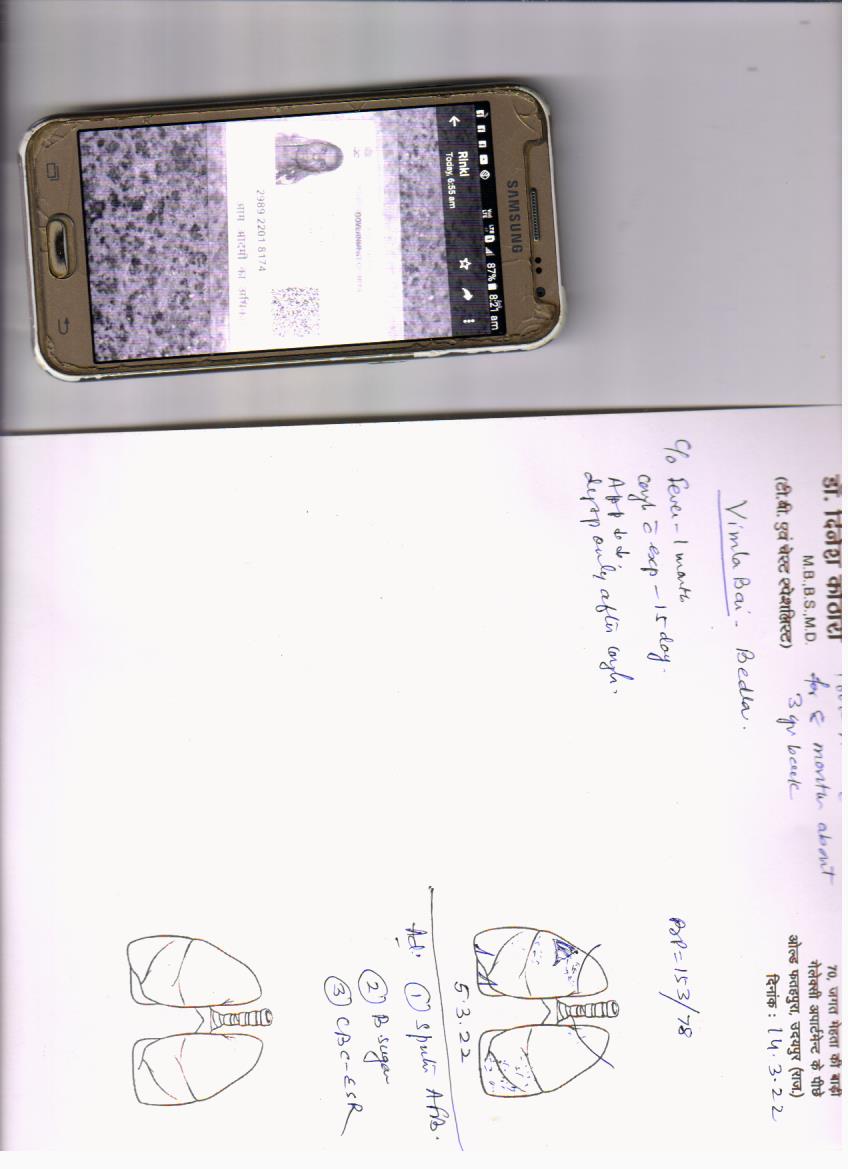 SAMSUNG
87% 8:21 am
Rinki
Today, 6:55 am
2989 2201 8174
डॉ. दिनेश कोठारी
M.B.,B.S.,M.D.
(टी.बी. एवं चेस्ट स्पेशलिस्ट)
for 6 month about
3 yr back
70, जगत मेहता की बाड़ी
गेलेक्सी अपार्टमेन्ट के पीछे
ओल्ड फतहपुरा, उदयपुर (राज.)
दिनांक : 14.3.22
Vimla Bai - Bedla.
c/o fever - 1 month
cough c̄ exp - 15 day.
App
dyspn only after cough.
BP = 153/78
5.3.22
Ad: ① Sputm AFB.
② B sugar
③ CBC-ESR